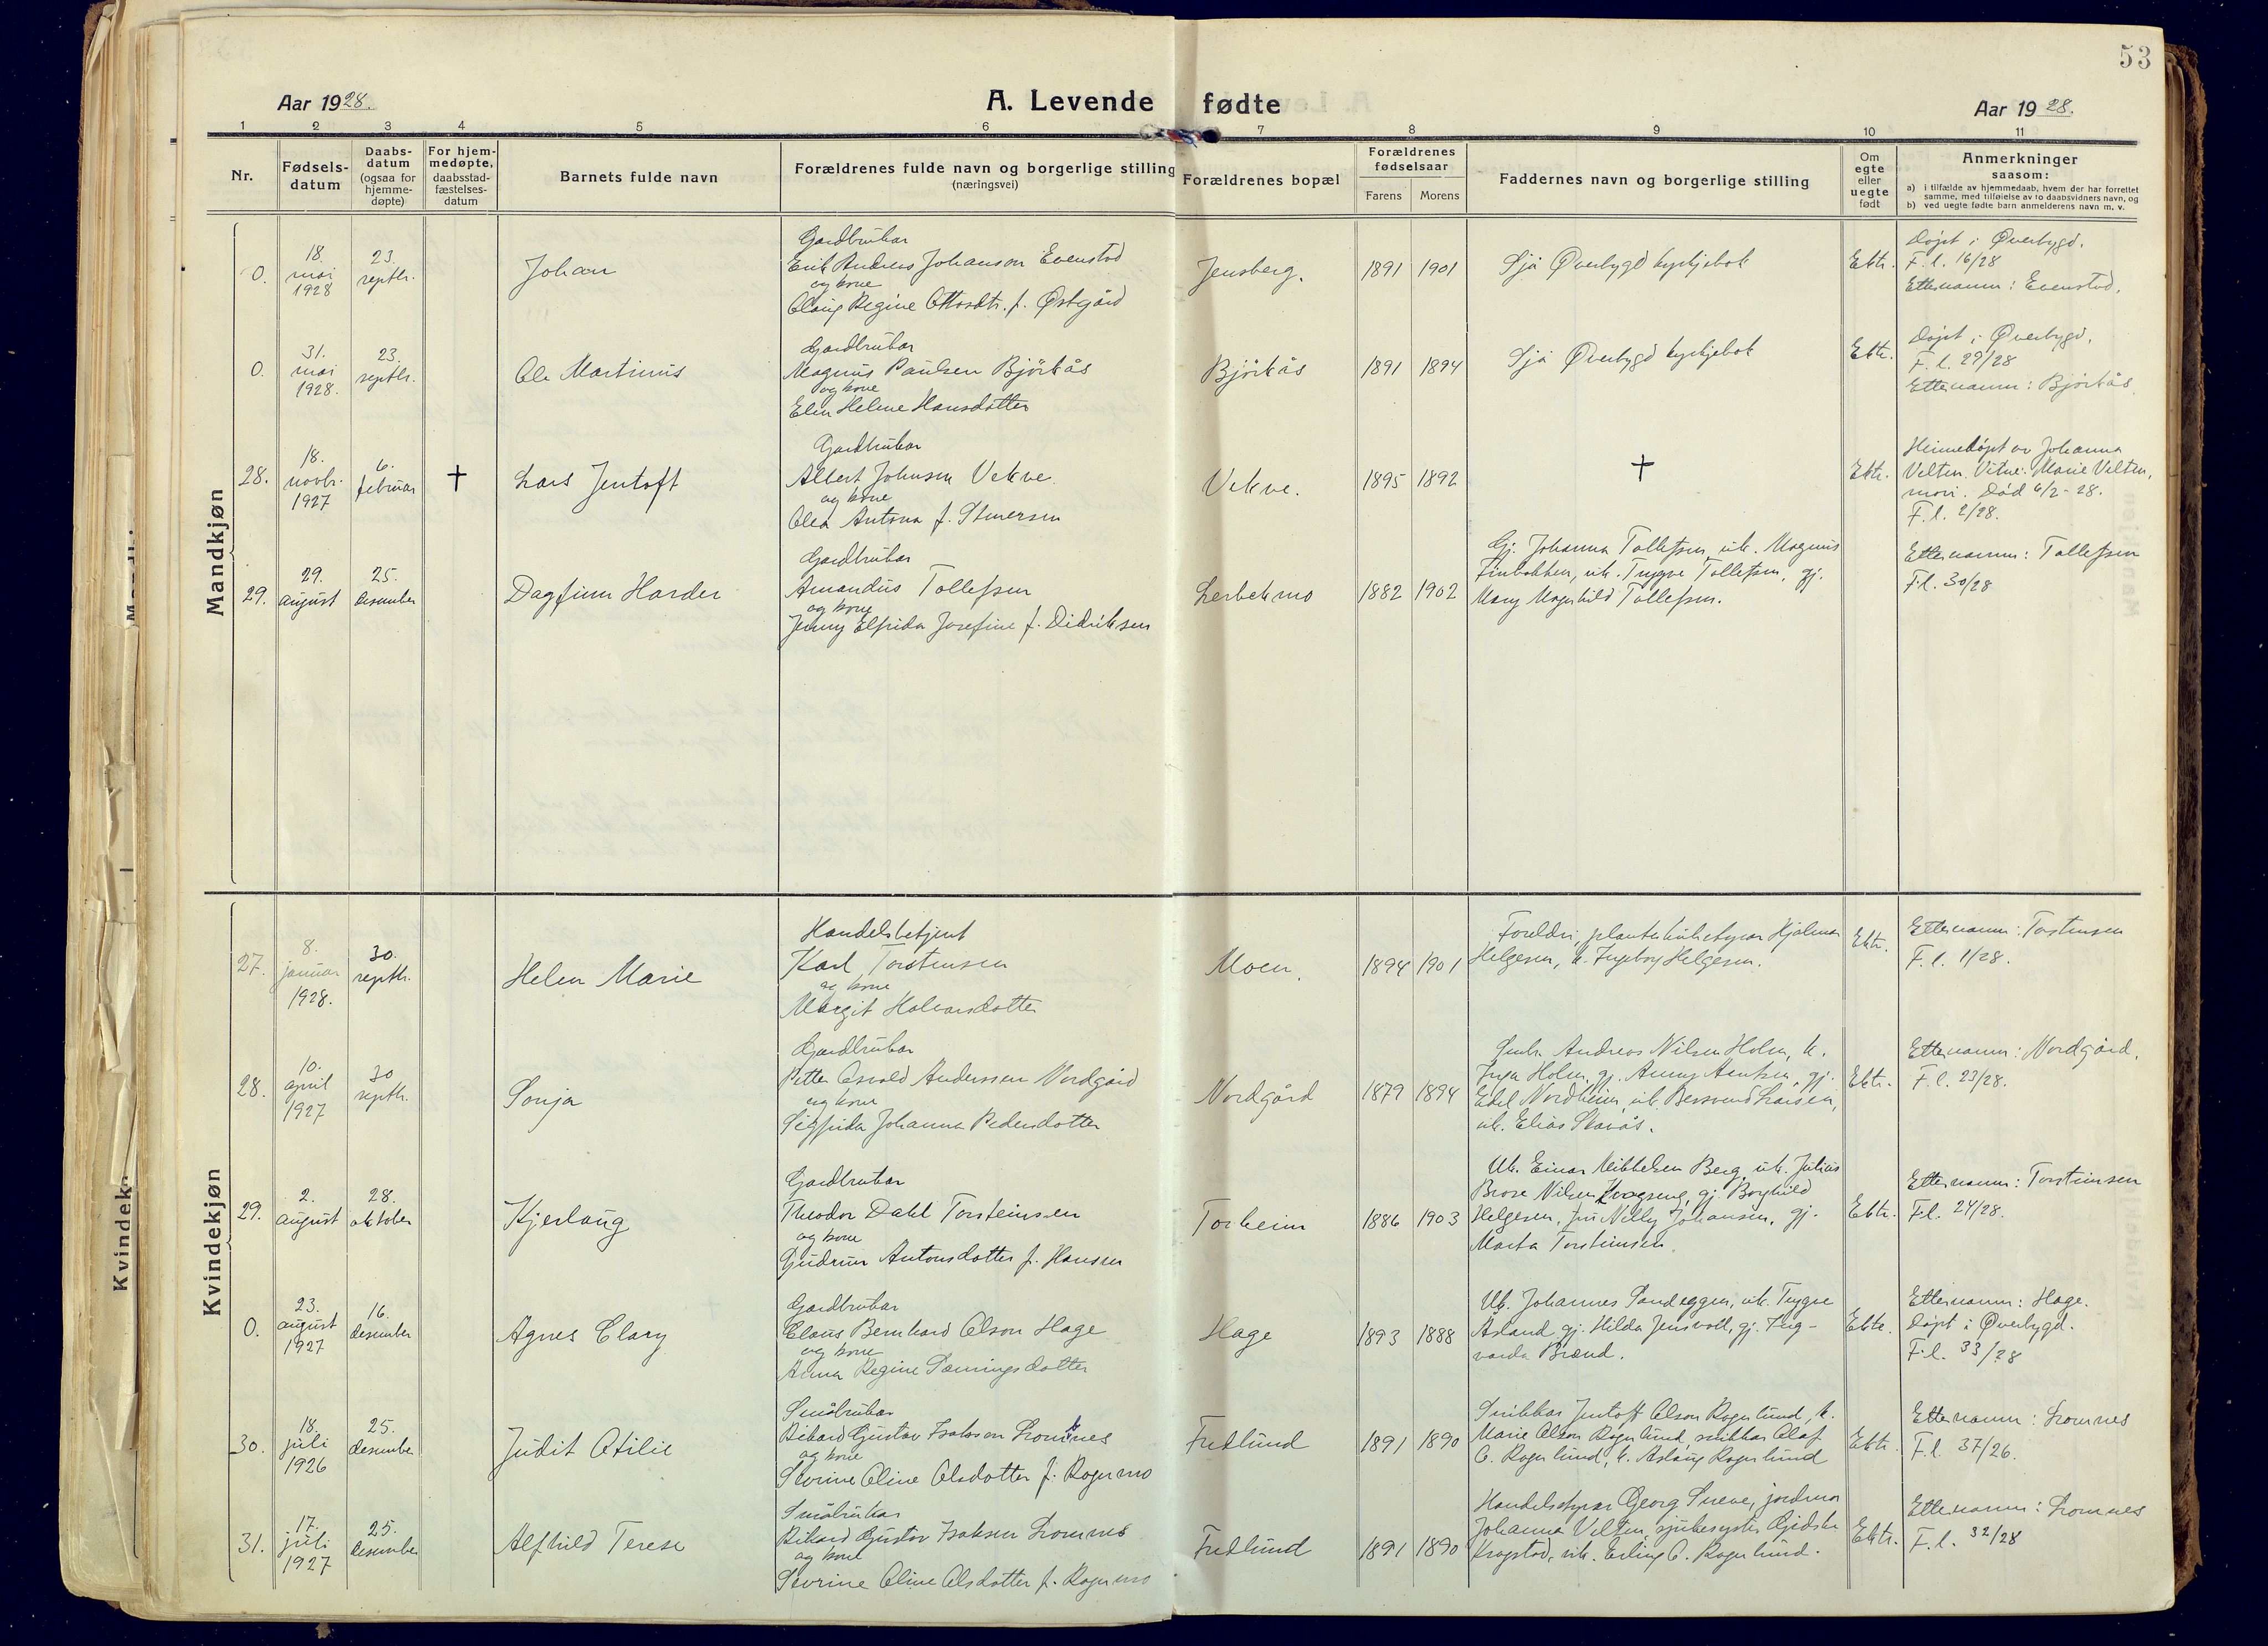 53
Aar 1928.
A. Levende fødte
Aar 1928.
1 2 3 4 5 6 7 8 9 10 11
Nr.
Fødsels-
datum
Daabs-
datum
(ogsaa for
hjemme-
døpte)
For hjem-
medøpte,
daabsstad-
fæstelses-
datum
Barnets fulde navn
Forældrenes fulde navn og borgerlige stilling
(næringsvei)
Forældrenes bopæl
Forældrenes
fødselsaar
Farens
Morens
Faddernes navn og borgerlige stilling
Om
egte
eller
uegte
født
Anmerkninger
saasom:
a) i tilfælde av hjemmedaab, hvem der har forrettet
samme, med tilføielse av to daabsvidners navn, og
b) ved uegte fødte barn anmelderens navn m. v.
Mandkjøn
0.
18.
mai
1928
23.
septbr.
Johan
Gardbrukar
Erik Andreas Johanson Evenstad
og kone
Olaug Regine Ottosdtr. f. Østgård
Jensberg.
1891 1901
Sjå Øverbygd kyrkjebok
Ekte.
Døpt i Øverbygd.
F. l. 16/28
Etternamn: Evenstad.
0.
31.
mai
1928.
23.
septbr.
Ole Martinus
Gardbrukar
Magnus Paulsen Bjørkås
og kone
Elen Helene Hansdotter
Bjørkås
1891 1894
Sjå Øverbygd kyrkjebok
Ekte.
Døpt i Øverbygd.
F. l. 29/28
Etternamn: Bjørkås.
28.
18.
novbr.
1927
6.
februar
†
Lars Jentoft
Gardbrukar
Albert Johnsen Vekve
og kone
Olea Antona f.
Vekve.
1895 1892
†
Ekte.
Heimedøpt av Johanna
Velten. Vitne: Marie Velten,
mori. Død 6/2-28.
F. l. 2/28.
29.
29.
august
25.
desember
Dagfinn Harder
Gardbrukar
Amandus Tollefsen
og kone
Jenny Elfrida Josefine f. Didriksen
Lerbekmo
1882 1902
Gj. Johanna Tollefsen, uk. Magnus
Finbakken, uk. Trygve Tollefsen, gj.
Mary Magnhild Tollefsen.
Etternamn: Tollefsen
F. l. 30/28
Kvindekjøn
27.
8.
januar
1928.
30.
septbr.
Helen Marie
Handelsbetjent
Karl Torstensen
og kone
Margit Halvarsdotter
Moen.
1894 1901
Foreldri, Hjalmar
Helgesen, k. Ingeborg Helgesen.
Ekte.
Etternamn: Torstensen
F. l. 1/28.
28.
10.
april
1927
30
septbr.
Sonja
Gardbrukar
Petter Osvald Anderssen Nordgård
og kone
Sigfrida Johanna Pedersdotter
Nordgård
1879 1894
Andreas Nilsen Holm, k.
Inga Holm, gj. Anny Arntsen, gj.
Edel Nordheim, uk. Bersvend Larsen,
uk. Elias Skavås.
Ekte.
Etternamn: Nordgård.
F. l. 23/28.
29.
2.
august
28.
oktober
Kjerlaug
Gardbrukar
Theodor Dahl Torsteinsen
og kone
Gudrun Antonsdotter f. Hansen
Torheim
1886 1903
Uk. Einar Mikkelsen Berg, uk. Julius
Brose Nilsen, gj. Borghild
Helgesen, fru Nelly Johansen, gj.
Marta Torsteinsen.
Ekte.
Etternamn: Torsteinsen
F. l. 24/28.
0.
23.
august
1927
16.
desember
Agnes Clary
Gardbrukar
Claus Bernhard Olson Hage
og kone
Anna Regine Sæmingsdotter
Hage
1893 1888
Uk. Johannes Sandeggen, uk. Trygve
Åsland, gj. Hilda Jensvoll, gj. Ing-
varda Brænd.
Ekte.
Etternamn: Hage.
Døpt i Øverbygd.
F. l. 33/28
30.
18.
juli
1926
25.
desember
Judit Otilie
Småbrukar
Rikard Gustav Isaksen Lomnes
og kone
Severine Oline Olsdotter f. Rognmo
Fredlund
1891 1890
Snikkar Jentoft Olson Rognlund, k.
Marie Olson Rognlund, snikkar Olaf
O. Rognlund, k. Aslaug Rognlund
Ekte.
Etternamn: Lomnes
F. l. 37/26.
31.
17.
juli
1927
25.
desember
Alfhild Terese
Småbrukar
Rikard Gustav Isaksen Lomnes
og kone
Severine Oline Olsdotter f. Rognmo
Fredlund
1891 1890
Handelsstyrar Georg Sneve, jordmor
Johanna Velten, sjukesyster
Krogstad, uk. Erling O. Rognlund.
Ekte.
Etternamn: Lomnes
F. l. 32/28
Kvindek